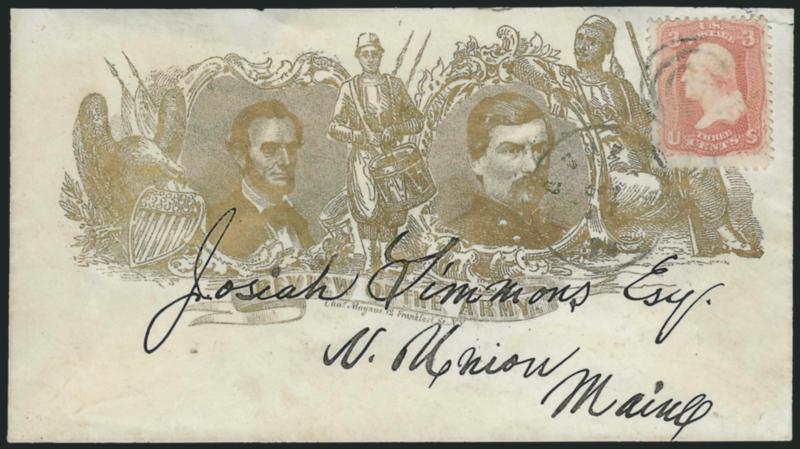 3 U.S. POSTAGE 3
THREE
U CENTS S
OF THE ARMY.
Chas. Magnus, 12 Frankfort St. N.Y.
Josiah Simmons Esq.
N. Union
Maine